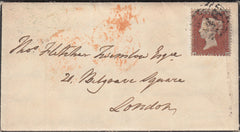 Thos Fletcher Twemlow Esqre
21. Belgrave Square
London